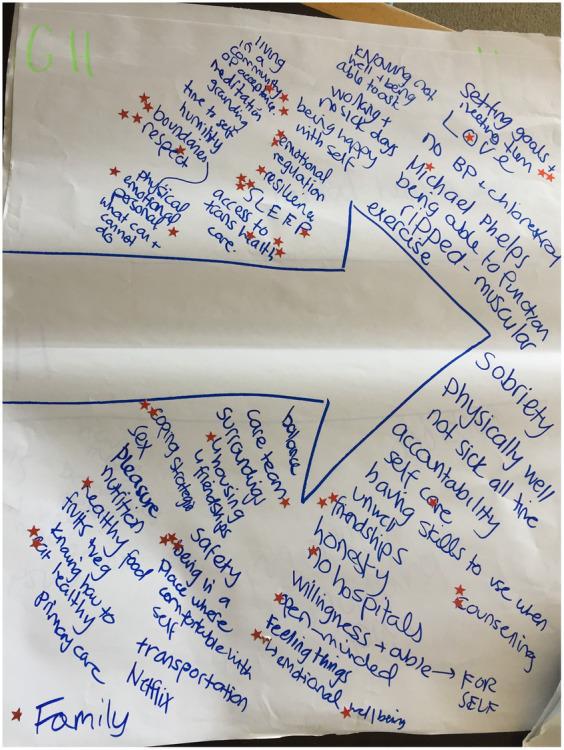 G11
living
in a
community
of acceptance.
meditation
grounding
time + self
humility
boundaries
respect
physical
emotional
personal
what can +
cannot
do
knowing not
well + being
able to ask
working +
no sick days
being happy
with self
emotional
regulation
resilience
SLEEP
access to
trans health
care.
Setting goals +
meeting them
LOVE
no BP + chlorestrol
Michael Phelps
being able to function
ripped - muscular
exercise
Sobriety
physically well
not sick all time
accountability
self care
having skills to use when
unwell
counselling
friendships
honesty
no hospitals
willingness + able → FOR
SELF
open-minded
Feeling things
emotional wellbeing
balance
care team
surroundings
housing
friendships
safety
being in a
place where
comfortable with
self
transportation
Netflix
coping strategies
sex
pleasure
nutrition
healthy food
fruits + veg
knowing how to
eat healthy
primary care
Family